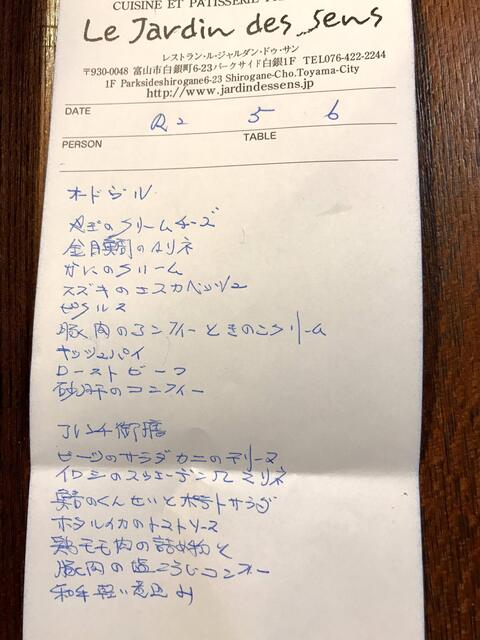 CUISINE ET PATISSERIE
Le Jardin des Sens
レストラン・ル・ジャルダン・ドゥ・サン
〒930-0048 富山市白銀町6-23パークサイド白銀1F TEL076-422-2244
1F Parksideshirogane6-23 Shirogane-Cho.Toyama-City
http://www.jardindessens.jp
DATE R2 5 6
PERSON TABLE
オードヴル
やぎのクリームチーズ
金目鯛のマリネ
かにのクリーム
スズキのエスカベッシュ
ピクルス
豚肉のコンフィーときのこクリーム
キッシュパイ
ローストビーフ
砂肝のコンフィー
フレンチ御膳
ビーツのサラダ カニのテリーヌ
イワシのスウェーデン マリネ
のくんせいとポテトサラダ
ホタルイカのトマトソース
鶏モモ肉の詰め物と
豚肉の塩こうじコンフィー
和牛軽い煮込み